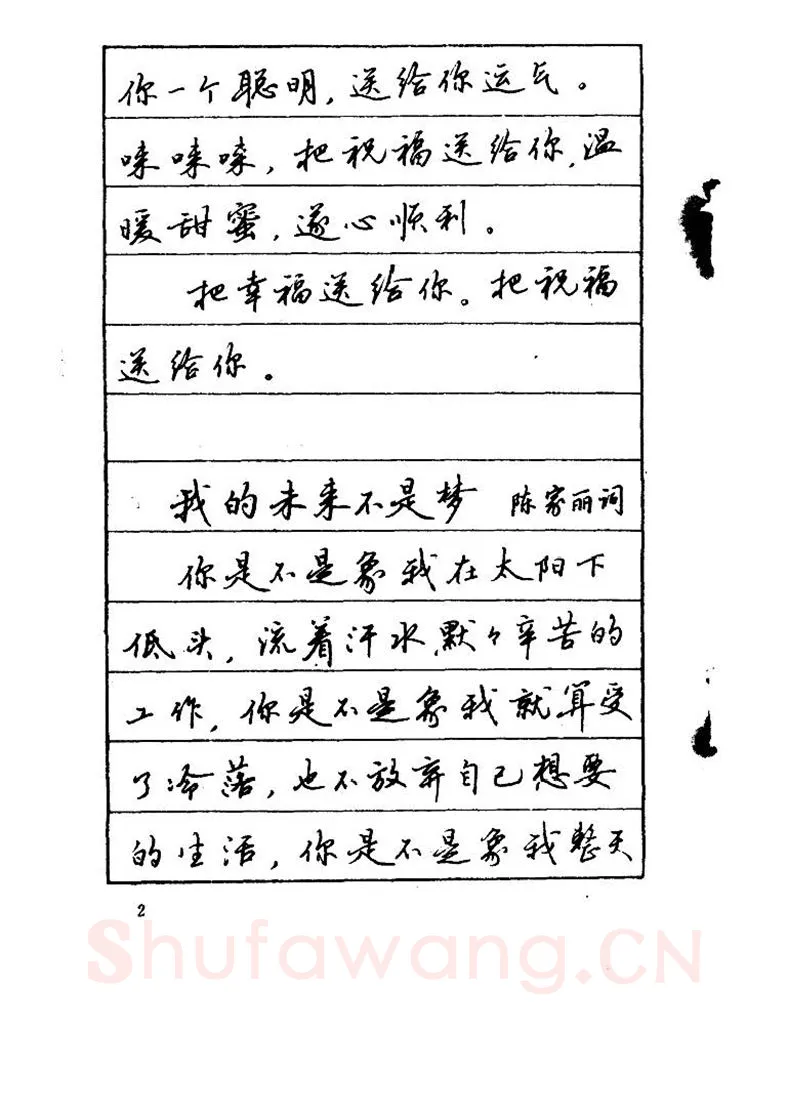 你一个聪明，送给你运气。
唻唻唻，把祝福送给你，温
暖甜蜜，遂心顺利。
把幸福送给你。把祝福
送给你。
我的未来不是梦 陈家丽词
你是不是象我在太阳下
低头，流着汗水，默々辛苦的
工作，你是不是象我就算受
了冷落，也不放弃自己想要
的生活，你是不是象我整天
2
Shufawang.CN